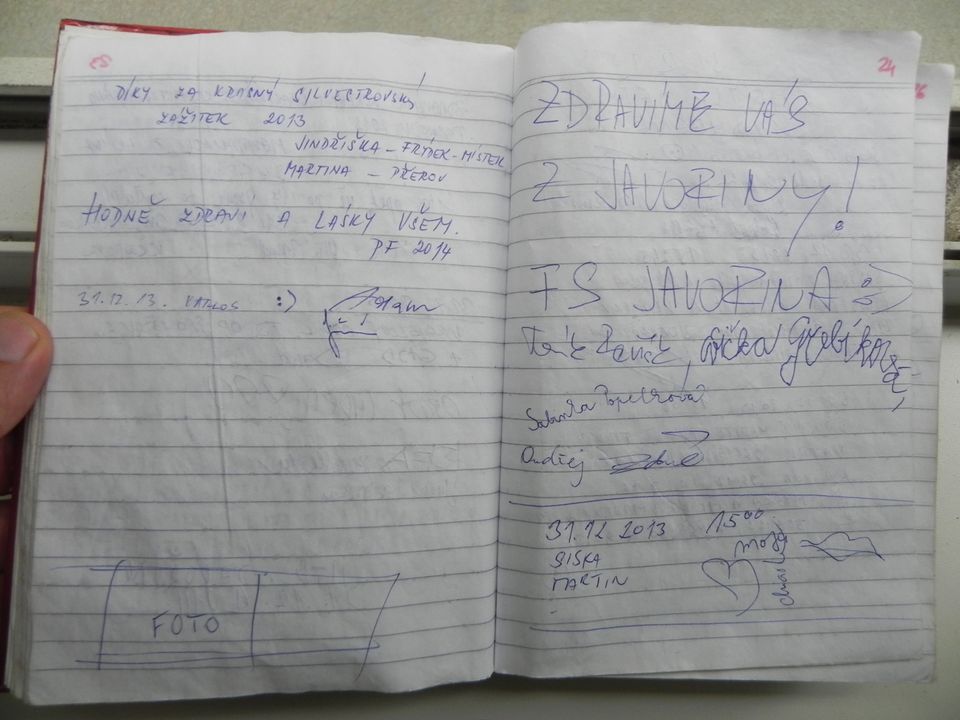 DÍKY ZA KRÁSNÝ SILVESTROVSKÝ
ZÁŽITEK 2013
JINDŘIŠKA - FRÝDEK-MÍSTEK
MARTINA - PŘEROV
HODNĚ ZDRAVÍ A LÁSKY VŠEM.
PF 2014
31.12.13. :) Adam
FOTO
24
ZDRAVÍME VÁS
Z JAVOŘINY!
FS JAVOŘINA :)
Gřebíková,
Sabinka Popelková
Ondřej
31.12 2013 15 00
SISKA
MARTIN